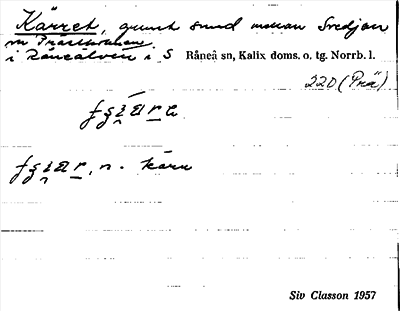 Kärret, grunt sund mellan Svedjan
i Råneälven i S Råneå sn, Kalix doms. o. tg. Norrb. l.
220 (Prä)
n. kärr
Siv Classon 1957